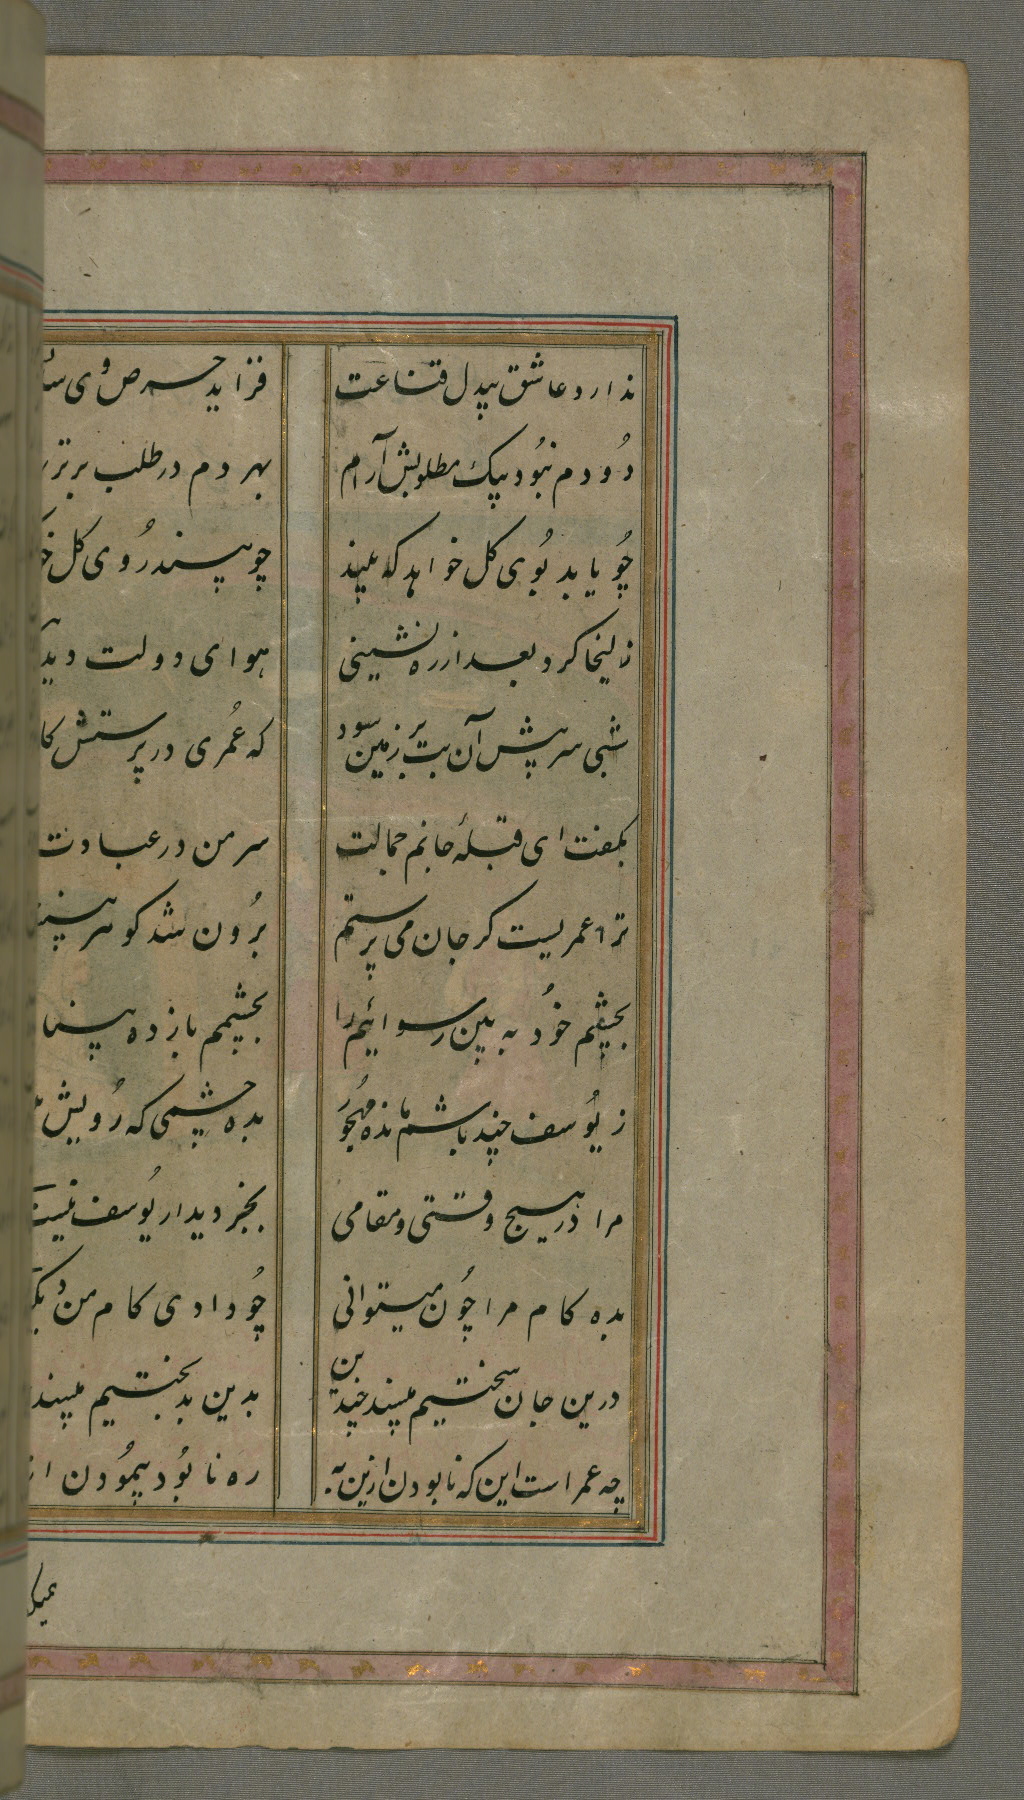 ندارد عاشق بیدل قناعت فزاید حرص وی
دو دم نبود بیک مطلوبش آرام بهر دم در طلب برتر
چو یابد بوی کل خواهد که بیند چو بیند روی کل
زلیخا کرد بعد از ره نشینی هوای دولت
شبی سر پیش آن بت بر زمین سود که عمری در پرستش
بگفت ای قبله جانم جمالت سر من در عبادت
ترا عمریست کز جان می پرستم برون شد کوهر
بچشم خود به بین رسوائیم را بچشمم باز ده
ز یوسف چند باشم مانده مهجور بده چشمی که رویش
مرا در هیچ وقتی و مقامی بجز دیدار یوسف نیست
بده کام مرا چون میتوانی چو دادی کام من
درین جان سختیم مپسند چندین بدین بدبختیم مپسند
چه عمر است این که نابودن ازین به ره نابود پیمودن